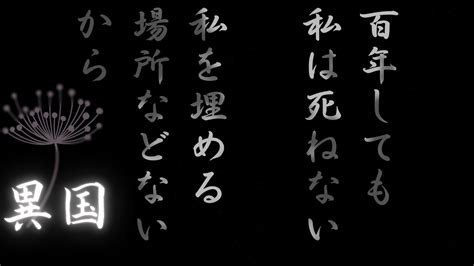 百年しても
私は死ねない
私を埋める
場所などない
から
異国